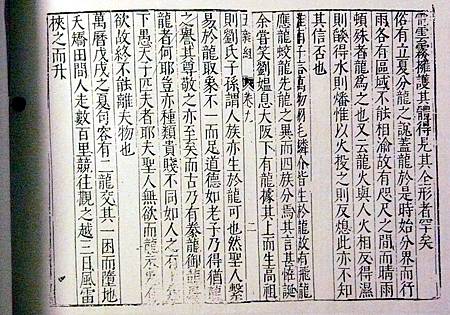 電雲霧擁護其體得見其全形者罕矣
俗有立夏分龍之說蓋龍於是時始分界而行
雨各有區域不能相渝故有咫尺之間而晴雨
頓殊者龍為之也又云龍火與人火相反得濕
則燄得水則燔惟以火投之則反熄此亦不知
其信否也
淮南子言萬物羽毛鱗介皆生於龍故有飛龍
應龍蛟龍先龍之異而四族分焉其言甚怪誕
余嘗笑劉媼息大阪下有龍據其上而生高祖
五雜組 卷九 二
則劉氏子孫謂人族亦生於龍可也然聖人繫
易於龍取象不一而足道德如老子乃得猶龍
之譽其尊敬之亦至矣而古乃有豢龍御龍
龍者何耶豈亦種類貴賤不同如人之有
下愚天子匹夫者耶夫聖人無欲而龍
欲故終不能離夫物也
萬曆戊戌之夏句容有二龍交其一困而墮地
夭矯田間人走數百里競往觀之越三日風雷
挾之而升